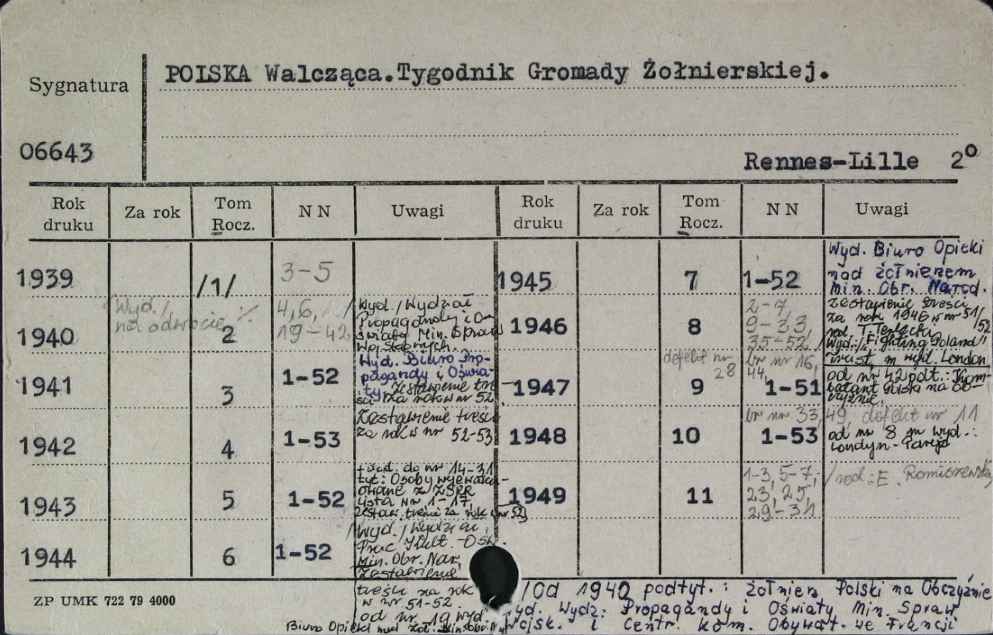 POLSKA Walcząca.Tygodnik Gromady Żołnierskiej.
Sygnatura
06643
Rennes-Lille 2°
Rok druku Za rok Tom Rocz. N N Uwagi Rok druku Za rok Tom Rocz. N N Uwagi
1939 /1/ 3-5
Wyd./ na odwrocie
1940 2 4,6, 19-42 Wyd./Wydział
Propagandy i O-
światy Min. Spraw
Wojskowych.
1941 3 1-52 Wyd. Biuro Pro-
pagandy i Oświa-
ty. Zestawienie tre-
ści za rok w nr 52
1942 4 1-53 Zestawienie treści
za rok w nr 52-53
1943 5 1-52 dod. do nr 14-31
tyt: Osoby wyewaku-
owane z ZSRR
Lista nr 1-17
Zestaw. treści za rok w nr 52
1944 6 1-52 Wyd./Wydział
Prac Kult.-Ośw.
Min. Obr. Nar.
Zestawienie
treści za rok
w nr 51-52.
od nr 19 wyd.
Biuro Opieki nad Żoł. Min. Obr.
1945 7 1-52 Wyd. Biuro Opieki
nad żołnierzem
Min. Obr. Narod.
1946 8 2-7, 9-33, 35-52 Zestawienie treści
za rok 1946 w nr 51/52
red. T. Terlecki
Wyd.: "Fighting Poland"
m. wyd. London
defekt nr 28
1947 9 br nr 16, 44, 1-51 od nr 42 podt.: Kom-
batant Polski na Ob-
czyźnie.
1948 10 br nr 33,49, defekt nr 11
1-53 od nr 8 m wyd.:
Londyn-Paryż
1949 11 1-3, 5-7,
23, 25,
29-31 red.: E.
ZP UMK 722 79 4000
/Od 1940 podtyt.: Żołnierz Polski na Obczyźnie
Wyd. Wydz: Propagandy i Oświaty Min. Spraw
Wojsk. i Centr. Kom. Obywat. we Francji